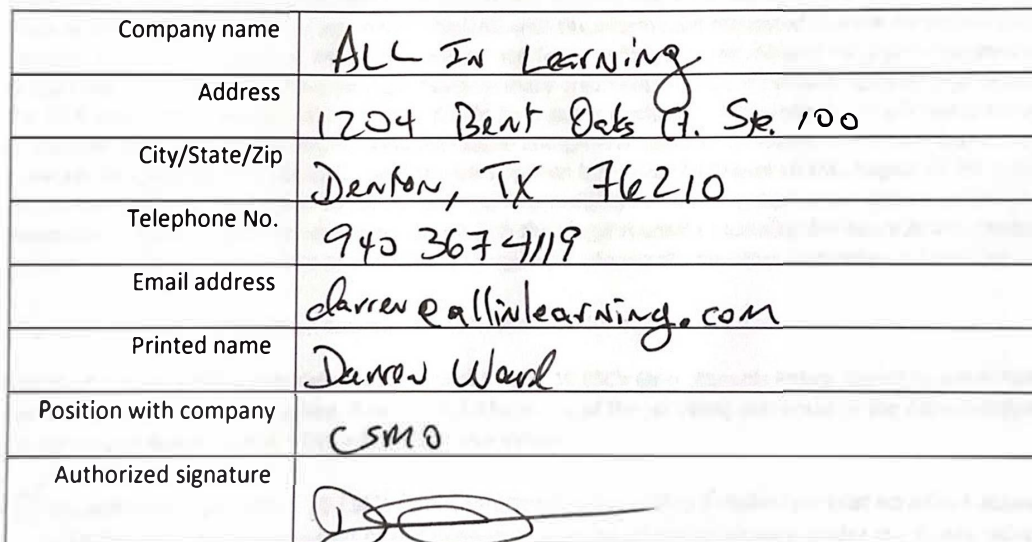 Company name ALL IN Learning
Address 1204 Bent Oaks Ct. Ste. 100
City/State/Zip Denton, TX 76210
Telephone No. 940 367 4119
Email address darren@allinlearning.com
Printed name Darren Ward
Position with company CSMO
Authorized signature